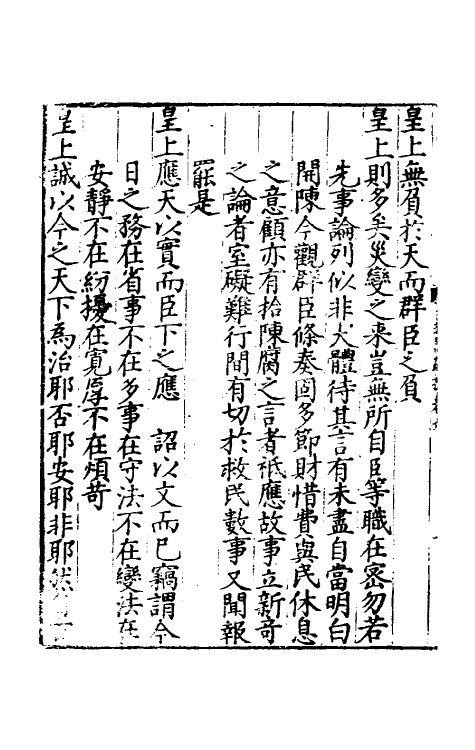 皇上無負於天而群臣之負
皇上則多矣災變之来豈無所自臣等職在密勿若
先事論列似非大體待其言有未盡自當明白
開陳今觀群臣條奏固多節財惜費與民休息
之意顧亦有拾陳腐之言者祗應故事立新奇
之論者室礙難行間有切於救民數事又聞報
罷是
皇上應天以實而臣下之應 詔以文而已竊謂今
日之務在省事不在多事在守法不在變法在
安靜不在紛擾在寛厚不在煩苛
皇上誠以今之天下爲治耶否耶安耶非耶然